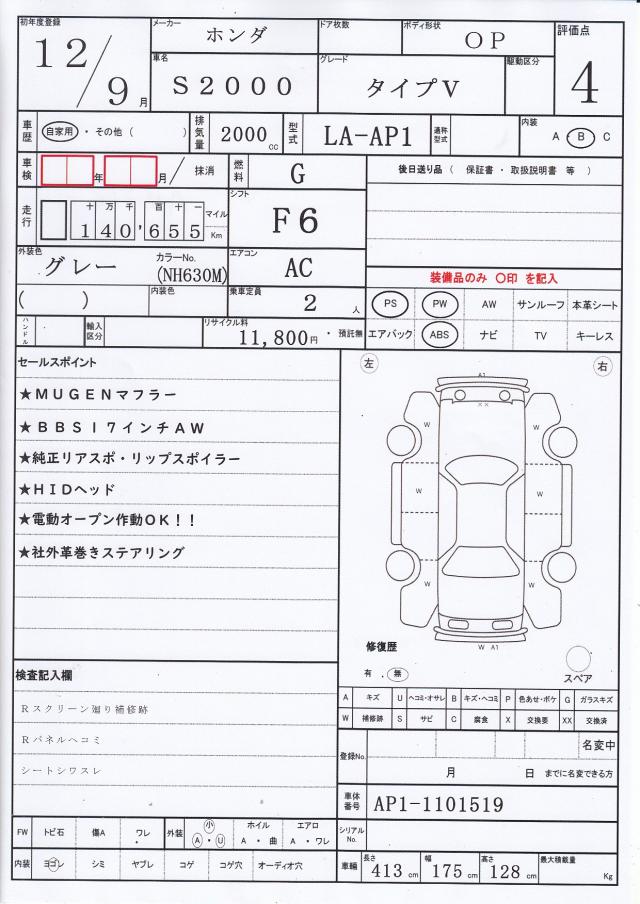 初年度登録 メーカー ドア枚数 ボディ形状 評価点
12/9月 ホンダ OP 4
車名 グレード 駆動区分
S2000 タイプV
車歴 自家用 ・ その他 ( ) 排気量 2000cc 型式 LA-AP1 通称型式 内装 A ・ B C
車検 年 月 / 抹消 燃料 G 後日送り品 ( 保証書 ・ 取扱説明書 等 )
走行 十万千百十一 マイル シフト
140,655 Km F6
外装色 カラーNo. エアコン
グレー (NH630M) AC 装備品のみ 〇印 を記入
( ) 内装色 乗車定員 2 人 PS PW AW サンルーフ 本革シート
ハンドル 輸入区分 リサイクル料 11,800円 ・ 預託無 エアバック ABS ナビ TV キーレス
セールスポイント 左 右
★MUGENマフラー
★BBS17インチAW
★純正リアスポ・リップスポイラー
★HIDヘッド
★電動オープン作動OK!!
★社外革巻きステアリング
A1
××
W W
W W
W W
W A1
修復歴
有 . 無
スペア
検査記入欄
Rスクリーン廻り補修跡
Rパネルヘコミ
シートシワスレ
A キズ U ヘコミ・オサレ B キズ・ヘコミ P 色あせ・ボケ G ガラスキズ
W 補修跡 S サビ C 腐食 X 交換要 XX 交換済
登録No. 名変中
月 日 までに名変できる方
車体番号 AP1-1101519
FW トビ石 傷A ワレ 外装 小 ホイル エアロ シリアルNo.
A ・ U A ・ 曲 A ・ ワレ
内装 ヨゴレ シミ ヤブレ コゲ コゲ穴 オーディオ穴 車輛 長さ 413 cm 幅 175 cm 高さ 128 cm 最大積載量 Kg